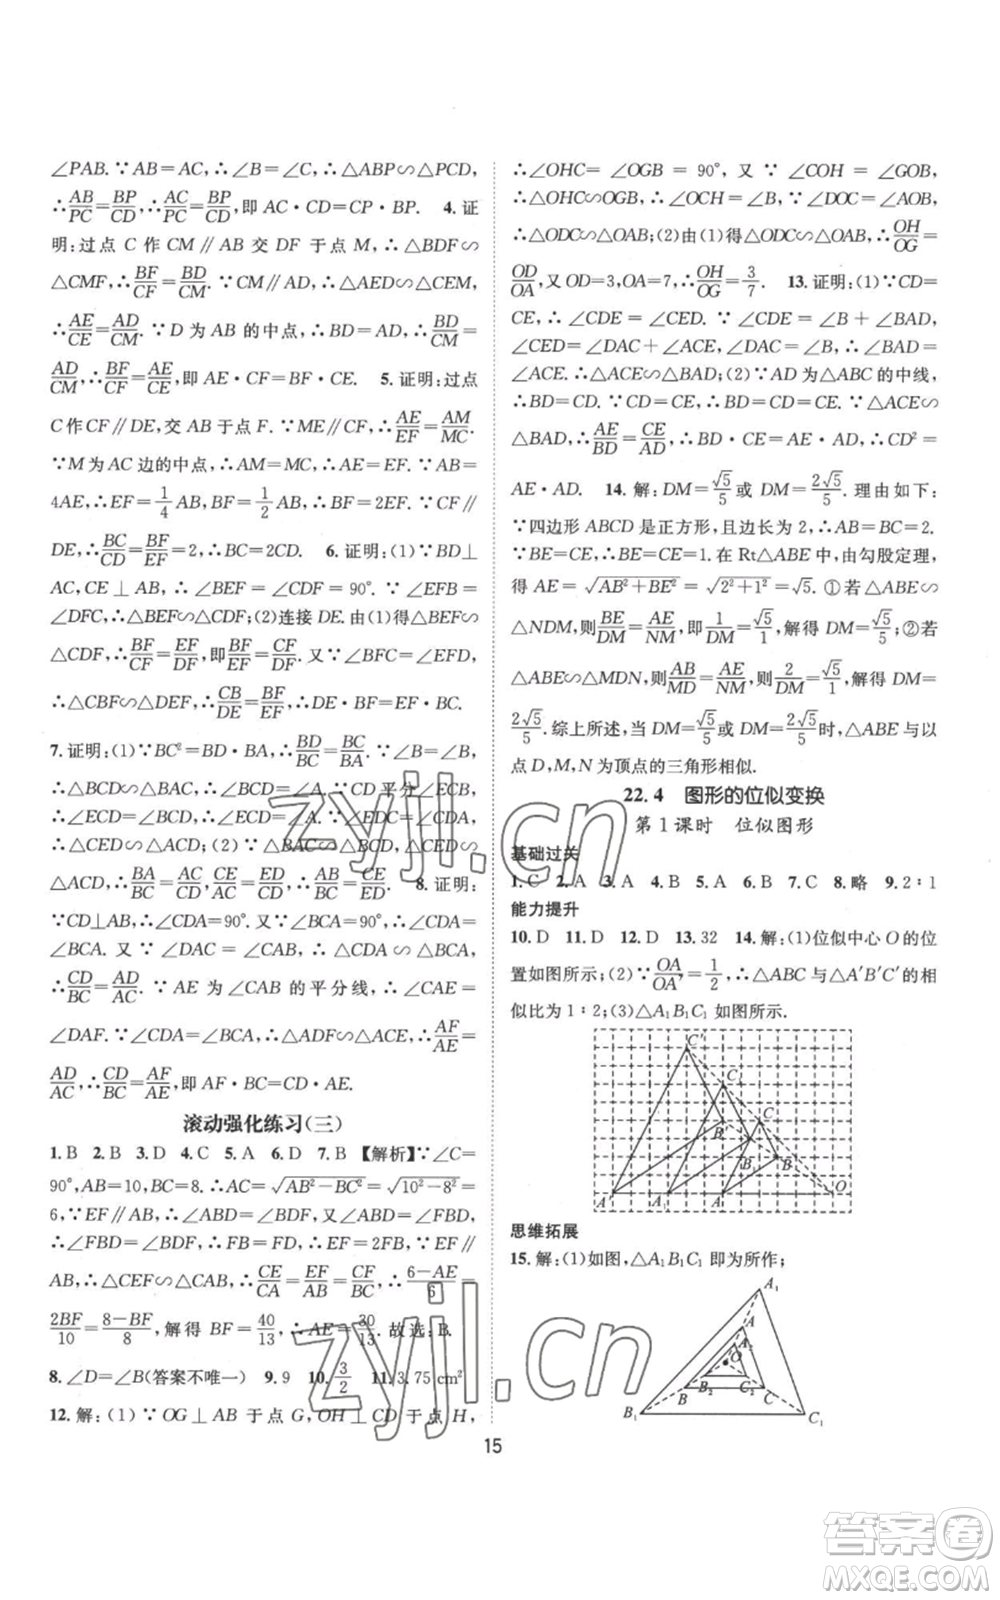 ∠PAB. ∵AB=AC,∴∠B=∠C,∴△ABP∽△PCD,
∴AB/PC=BP/CD,∴AC/PC=BP/CD,即 AC·CD=CP·BP. 4. 证
明:过点 C 作 CM∥AB 交 DF 于点 M,∴△BDF∽
△CMF,∴BF/CF=BD/CM. ∵CM∥AB,∴△ADE∽△CEM,
∴AE/CE=AD/CM. ∵D 为 AB 的中点,∴BD=AD,∴BD/CM=
AD/CM,∴BF/CF=AE/CE,即 AE·CF=BF·CE. 5. 证明:过点
C 作 CF∥DE,交 AB 于点 F. ∵ME∥CF,∴AE/EF=AM/MC.
∵M 为 AC 边的中点,∴AM=MC,∴AE=EF. ∵AB=
4AE,∴EF=1/4 AB,BF=1/2 AB,∴BF=2EF. ∵CF∥
DE,∴BC/CD=BF/EF=2,∴BC=2CD. 6. 证明:(1)∵BD⊥
AC,CE⊥AB,∴∠BEF=∠CDF=90°. ∵∠EFB=
∠DFC,∴△BEF∽△CDF;(2)连接 DE. 由(1)得△BEF∽
△CDF,∴BF/CF=EF/DF,即BF/EF=CF/DF. 又∵∠BFC=∠EFD,
∴△CBF∽△DEF,∴CB/DE=BF/EF,∴BC·EF=DE·BF.
7. 证明:(1)∵BC²=BD·BA,∴BD/BC=BC/BA. ∵∠B=∠B,
∴△BCD∽△BAC;(2)∵CD 平分∠ECB,
∴∠ECD=∠BCD. ∵△BCD∽△BAC,∴∠BCD=∠A,
∴∠ECD=∠A. ∵∠CED=∠AEC,∴△ECD∽△EAC,
∴BA/BC=AC/CD,AC/CD=EC/ED,∴BA/BC=EC/ED. 8. 证明:
∵CD⊥AB,∴∠CDA=90°. ∵∠BCA=90°,∴∠CDA=
∠BCA. 又∵∠DAC=∠CAB,∴△CDA∽△BCA,
∴CD/BC=AD/AC. ∵AE 为∠CAB 的平分线,∴∠CAE=
∠DAF. ∵∠CDA=∠BCA,∴△DAF∽△CAE,∴AF/AE=
AD/AC,∴CD/BC=AF/AE,即 AF·BC=CD·AE.
滚动强化练习(三)
1. B 2. B 3. D 4. C 5. A 6. D 7. B 【解析】∵∠C=
90°,AB=10,BC=8. ∴AC=√(AB²-BC²)=√(10²-8²)=
6,∵EF∥AB,∴∠ABF=∠DFB. ∵BD平分∠ABC,
∴∠FBD=∠ABD=∠FDB,∴FD=FB,∴EF=2FB,∵EF∥
AB,∴△CEF∽△CAB,∴CE/CA=EF/AB=CF/BC,∴(6-AE)/6=
2BF/10=(8-BF)/8,解得 BF=40/13,∴AE=30/13. 故选:B.
8. ∠D=∠B(答案不唯一) 9. 9 10. 3/2 11. 3.75 cm²
12. 解:(1)∵OG⊥AB 于点 G,OH⊥CD 于点 H,
∴∠OHC=∠OGB=90°,又∵∠COH=∠GOB,
∴△OHC∽△OGB,∴∠OCD=∠B,∵∠O=∠O,
∴△ODC∽△OAB;(2)由(1)得△ODC∽△OAB,∴OH/OG=
OD/OA,又 OD=3,OA=7,∴OH/OG=3/7. 13. 证明:(1)∵CD=
CE,∴∠CDE=∠CED. ∵∠CDE=∠B+∠BAD,
∠CED=∠DAC+∠ACE,∠B=∠DAC,∴∠BAD=
∠ACE. ∴△BAD∽△ACE;(2)∵AD为△ABC的中线,
∴BD=CD. ∵CD=CE,∴BD=CE. ∵△ACE∽
△BAD,∴AE/BD=CE/AD,∴AE/CD=CD/AD,∴CD²=
AE·AD. 14. 解:DM=√5/5或 DM=2√5/5. 理由如下:
∵四边形 ABCD 是正方形,且边长为 2,∴AB=BC=2.
∵BE=CE,∴BE=CE=1. 在 Rt△ABE 中,由勾股定理,
得 AE=√(AB²+BE²)=√(2²+1²)=√5. ①若△ABE∽
△NDM,则BE/DM=AE/NM,即1/DM=√5/1,解得 DM=√5/5;②若
△ABE∽△MDN,则AB/MD=AE/NM,则2/DM=√5/1,解得 DM=
2√5/5. 综上所述,当 DM=√5/5或 DM=2√5/5时,△ABE 与以
点 D,M,N 为顶点的三角形相似.
22.4 图形的位似变换
第1课时 位似图形
基础过关
1. C 2. A 3. A 4. B 5. A 6. B 7. C 8. 略 9. 2∶1
能力提升
10. D 11. D 12. D 13. 32 14. 解:(1)位似中心 O 的位
置如图所示;(2)∵OA/OA′=1/2,∴△ABC 与△A′B′C′的相
似比为 1∶2;(3)△A₁B₁C₁ 如图所示.
C′
C₁
C
B′
B
A′ A₁ A O
思维拓展
15. 解:(1)如图,△A₁B₁C₁ 即为所作;
A₁
A
A₂
O
B B₂ C₂ C
B₁ C₁
15
zyjl.cn
zyjl.cn
答案圈
MXQE.COM